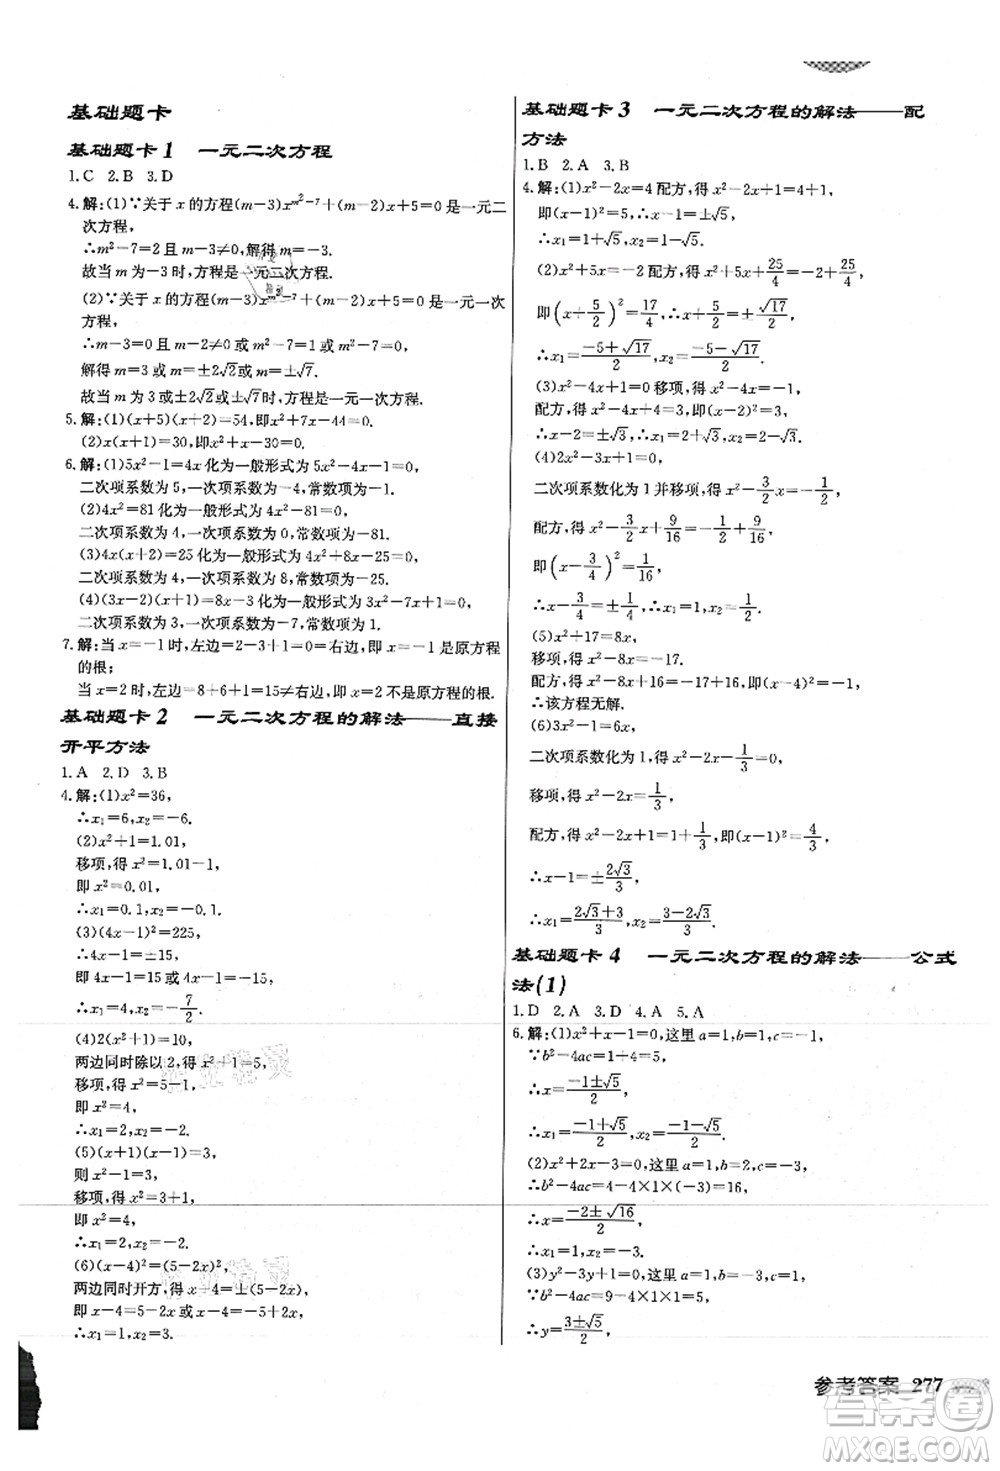 基础题卡
基础题卡1 一元二次方程
1.C 2.B 3.D
4.解:(1)∵关于x的方程(m-3)x^{m²-7}+(m-2)x+5=0是一元二
次方程,
∴m²-7=2且m-3≠0,解得m=-3.
故当m=-3时,方程是一元二次方程.
(2)∵关于x的方程(m-3)x^{m²-7}+(m-2)x+5=0是一元一次
方程,
∴m-3=0或m²-7=0或m²-7=1.
解得m=3或m=±2√2或m=±√7.
故当m为3或±2√2或±√7时,方程是一元一次方程.
5.解:(1)(x+5)(x+2)=54,即x²+7x-44=0.
(2)x(x+1)=30,即x²+x-30=0.
6.解:(1)5x²-1=4x化为一般形式为5x²-4x-1=0,
二次项系数为5,一次项系数为-4,常数项为-1.
(2)4x²=81化为一般形式为4x²-81=0,
二次项系数为4,一次项系数为0,常数项为-81.
(3)4x(x+2)=25化为一般形式为4x²+8x-25=0,
二次项系数为4,一次项系数为8,常数项为-25.
(4)(3x-2)(x+1)=8x-3化为一般形式为3x²-7x+1=0,
二次项系数为3,一次项系数为-7,常数项为1.
7.解:当x=-1时,左边=2-3+1=0=右边,即x=-1是原方程
的根;
当x=2时,左边=8+6+1=15≠右边,即x=2不是原方程的根.
基础题卡2 一元二次方程的解法——直接
开平方法
1.A 2.D 3.B
4.解:(1)x²=36,
∴x₁=6,x₂=-6.
(2)x²+1=1.01,
移项,得x²=1.01-1,
即x²=0.01,
∴x₁=0.1,x₂=-0.1.
(3)(4x-1)²=225,
∴4x-1=±15,
即4x-1=15或4x-1=-15,
∴x₁=4,x₂=-7/2.
(4)2(x²+1)=10,
两边同时除以2,得x²+1=5,
移项,得x²=5-1,
即x²=4,
∴x₁=2,x₂=-2.
(5)(x+1)(x-1)=3,
则x²-1=3,
移项,得x²=3+1,
即x²=4,
∴x₁=2,x₂=-2.
(6)(x-4)²=(5-2x)²,
两边同时开方,得x-4=±(5-2x),
即x-4=5-2x或x-4=-5+2x,
∴x₁=1,x₂=3.
基础题卡3 一元二次方程的解法——配
方法
1.B 2.A 3.B
4.解:(1)x²-2x=4配方,得x²-2x+1=4+1,
即(x-1)²=5,∴x-1=±√5,
∴x₁=1+√5,x₂=1-√5.
(2)x²+5x=-2配方,得x²+5x+25/4=-2+25/4,
即(x+5/2)²=17/4,∴x+5/2=±√17/2,
∴x₁=(-5+√17)/2,x₂=(-5-√17)/2.
(3)x²-4x+1=0移项,得x²-4x=-1,
配方,得x²-4x+4=-1+4,即(x-2)²=3,
∴x-2=±√3,∴x₁=2+√3,x₂=2-√3.
(4)2x²-3x+1=0,
二次项系数化为1并移项,得x²-3/2x=-1/2,
配方,得x²-3/2x+9/16=-1/2+9/16,
即(x-3/4)²=1/16,
∴x-3/4=±1/4,∴x₁=1,x₂=1/2.
(5)x²+17=8x,
移项,得x²-8x=-17.
配方,得x²-8x+16=-17+16,即(x-4)²=-1,
∴该方程无解.
(6)3x²-1=6x,
二次项系数化为1,得x²-2x-1/3=0,
移项,得x²-2x=1/3,
配方,得x²-2x+1=1+1/3,即(x-1)²=4/3,
∴x-1=±2√3/3,
∴x₁=(2√3+3)/3,x₂=(3-2√3)/3.
基础题卡4 一元二次方程的解法——公式
法(1)
1.D 2.A 3.D 4.A 5.A
6.解:(1)x²+x-1=0,这里a=1,b=1,c=-1,
∵b²-4ac=1+4=5,
∴x=(-1±√5)/2,
∴x₁=(-1+√5)/2,x₂=(-1-√5)/2.
(2)x²+2x-3=0,这里a=1,b=2,c=-3,
∴b²-4ac=4-4×1×(-3)=16,
∴x=(-2±√16)/2,
∴x₁=1,x₂=-3.
(3)y²-3y+1=0,这里a=1,b=-3,c=1,
∵b²-4ac=9-4×1×1=5,
∴y=(3±√5)/2,
参考答案 277
答案圈
MXQE.COM